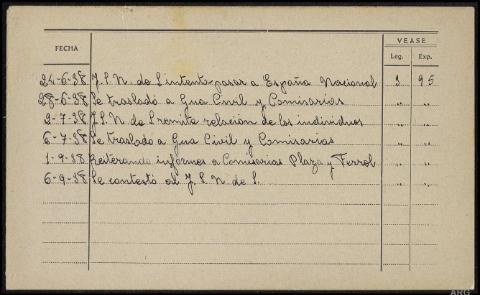 VEASE
FECHA Leg. Exp.
24-6-38 J.S.N. de S intente pasar a España Nacional 3 95
28-6-38 Se trasladó a Gua Civil y Comisarias " "
2-7-38 J.S.N. de S remite relación de los individuos " "
6-7-38 Se traslado a Gua Civil y Comisarias " "
1-9-38 Reiterando informes a Comisarias Plaza y Ferrol " "
6-9-38 Se contestó al J.S.N. de S. " "
ARG